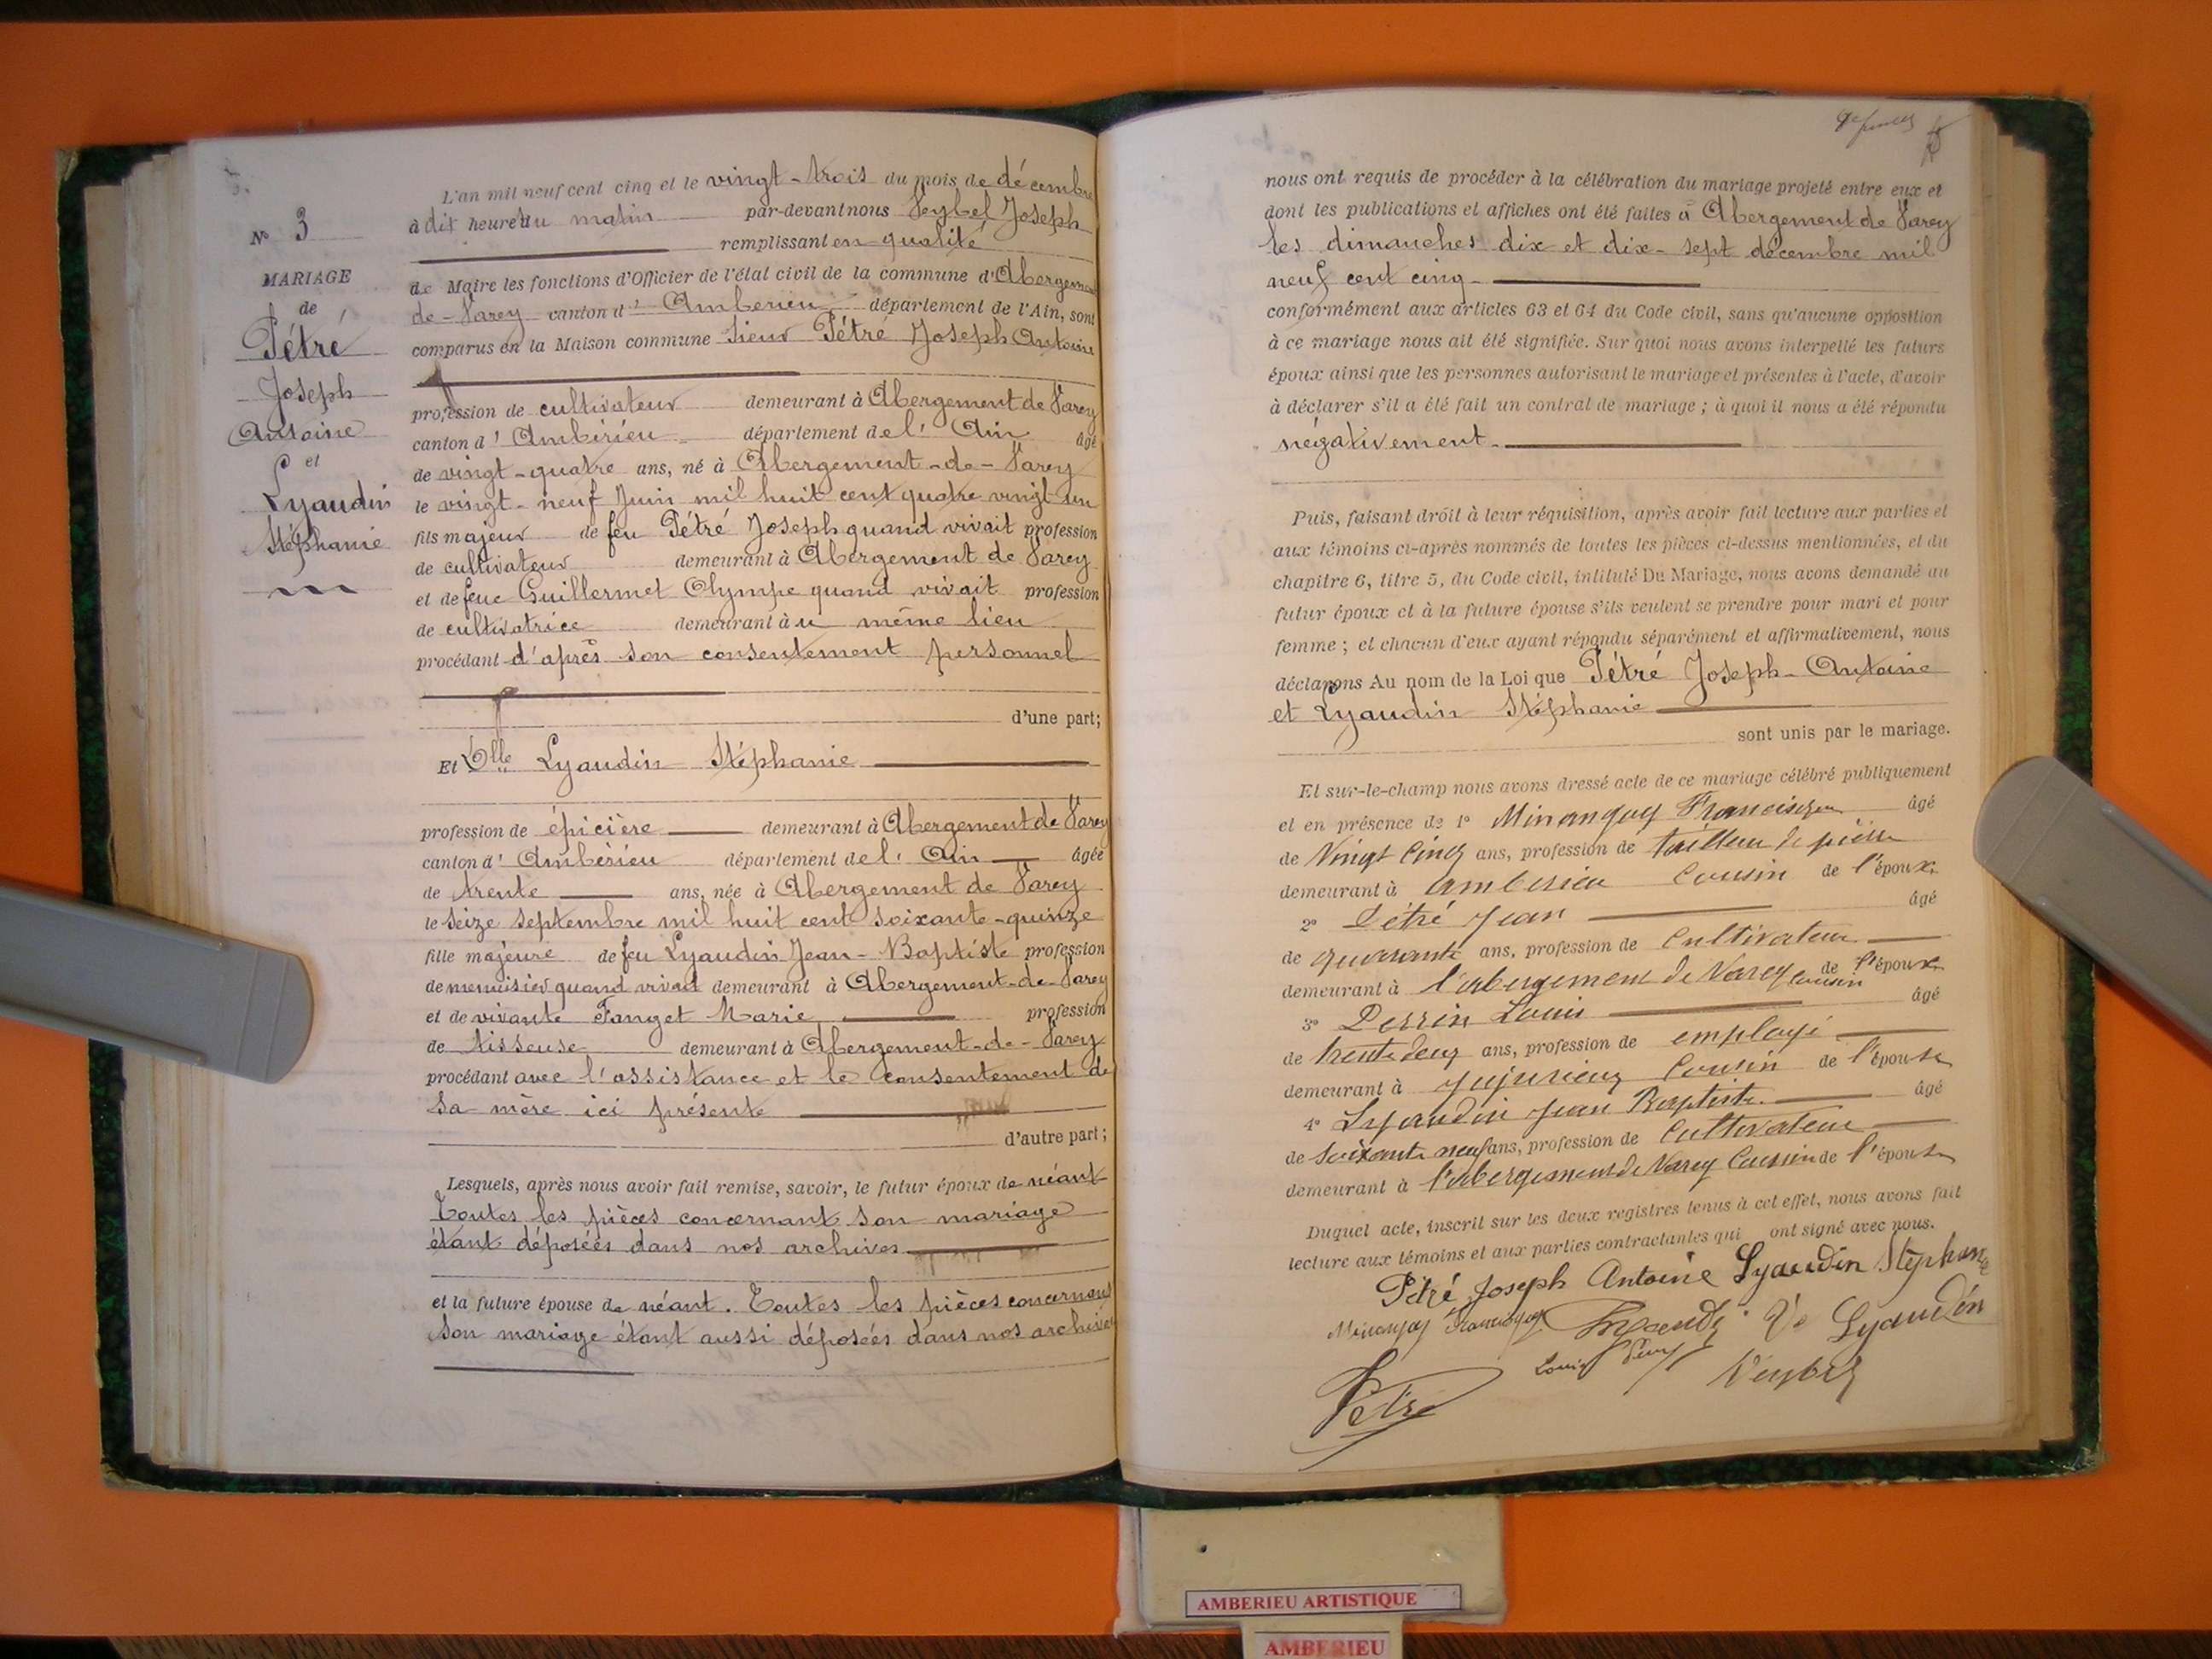 N° 3
MARIAGE
de
Pétré
Joseph
Antoine
et
Lyaudin
Stéphanie
L'an mil neuf cent cinq et le vingt-trois du mois de décembre
à dix heures du matin par-devant nous Veybel Joseph
remplissant en qualité
de Maire les fonctions d'Officier de l'état civil de la commune d'Abergement
de-Varey canton d'Ambérieu département de l'Ain, sont
comparus en la Maison commune sieur Pétré Joseph Antoine
profession de cultivateur demeurant à Abergement de Varey
canton d'Ambérieu département de l'Ain âgé
de vingt-quatre ans, né à Abergement-de-Varey
le vingt-neuf Juin mil huit cent quatre vingt un
fils majeur de feu Pétré Joseph quand vivait profession
de cultivateur demeurant à Abergement de Varey
et de feue Guillermet Olympe quand vivait profession
de cultivatrice demeurant au même lieu
procédant d'après son consentement personnel
d'une part;
Et Dlle Lyaudin Stéphanie
profession de épicière demeurant à Abergement de Varey
canton d'Ambérieu département de l'Ain âgée
de trente ans, née à Abergement de Varey
le seize septembre mil huit cent soixante-quinze
fille majeure de feu Lyaudin Jean-Baptiste profession
de menuisier quand vivait demeurant à Abergement-de-Varey
et de vivante Fanget Marie profession
de tisseuse demeurant à Abergement-de-Varey
procédant avec l'assistance et le consentement de
sa mère ici présente
d'autre part;
Lesquels, après nous avoir fait remise, savoir, le futur époux de néant
Toutes les pièces concernant son mariage
étant déposées dans nos archives
et la future épouse de néant. Toutes les pièces concernant
son mariage étant aussi déposées dans nos archives
nous ont requis de procéder à la célébration du mariage projeté entre eux et
dont les publications et affiches ont été faites à Abergement de Varey
les dimanches dix et dix-sept décembre mil
neuf cent cinq
conformément aux articles 63 et 64 du Code civil, sans qu'aucune opposition
à ce mariage nous ait été signifiée. Sur quoi nous avons interpellé les futurs
époux ainsi que les personnes autorisant le mariage et présentes à l'acte, d'avoir
à déclarer s'il a été fait un contrat de mariage; à quoi il nous a été répondu
négativement.
Puis, faisant droit à leur réquisition, après avoir fait lecture aux parties et
aux témoins ci-après nommés de toutes les pièces ci-dessus mentionnées, et du
chapitre 6, titre 5, du Code civil, intitulé Du Mariage, nous avons demandé au
futur époux et à la future épouse s'ils veulent se prendre pour mari et pour
femme; et chacun d'eux ayant répondu séparément et affirmativement, nous
déclarons Au nom de la Loi que Pétré Joseph-Antoine
et Lyaudin Stéphanie
sont unis par le mariage.
Et sur-le-champ nous avons dressé acte de ce mariage célébré publiquement
et en présence de 1° Minangoy âgé
de Vingt Cinq ans, profession de tailleur de pierre
demeurant à Amberieu Cousin de l'époux
2° Pétré Jean âgé
de quarante ans, profession de Cultivateur
demeurant à l'abergement de Varey cousin de l'époux
3° Perrin Louis âgé
de trente deux ans, profession de employé
demeurant à Jujurieux Cousin de l'épouse
4° Lyaudin Jean Baptiste âgé
de Soixante neuf ans, profession de Cultivateur
demeurant à l'abergement de Varey Cousin de l'épouse
Duquel acte, inscrit sur les deux registres tenus à cet effet, nous avons fait
lecture aux témoins et aux parties contractantes qui ont signé avec nous.
Pétré Joseph Antoine Lyaudin Stéphanie
Minangoy Lyaudin Ve Lyaudin
Louis Veybel
Pétré
AMBERIEU ARTISTIQUE
AMBERIEU